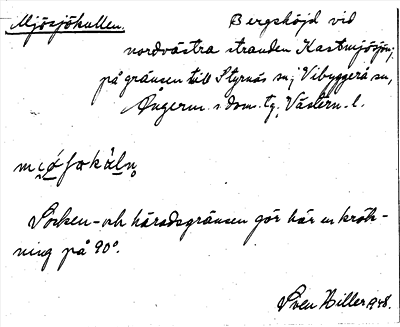 Mjösjökullen. Bergshöjd vid
nordvästra stranden Kastmjösjön;
på gränsen till Styrnäs sn; Vibyggerå sn,
Ångerm. s dom. tg, Västern. l.
Socken- och häradsgränsen gör här en krök-
ning på 90°.
Sven Hiller 1948.